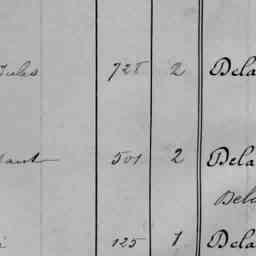 Jules 728 2 Dela
501 2 Dela
Dela
125 1 Dela